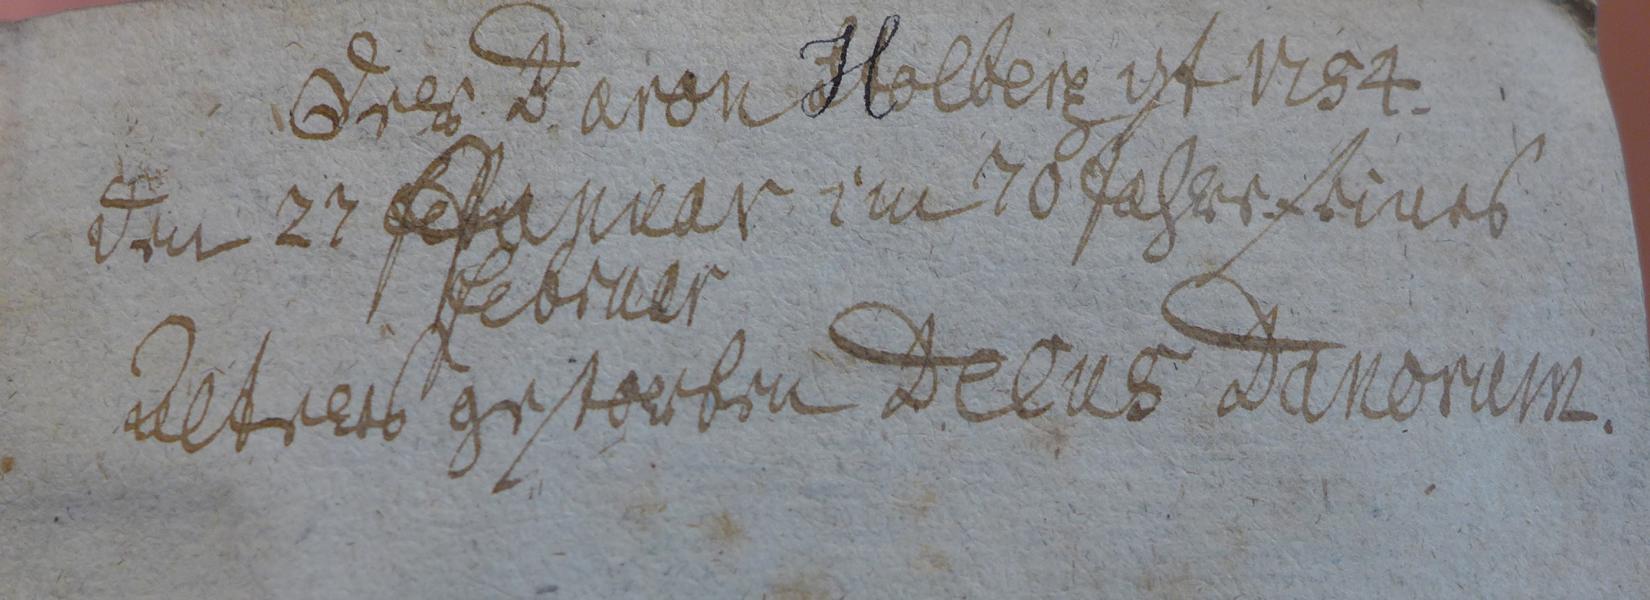 Der Baron Holberg ist 1754.
den 27 Januar im 70 Jahre seines
Februar
Alters gestorben Decus Danorum.